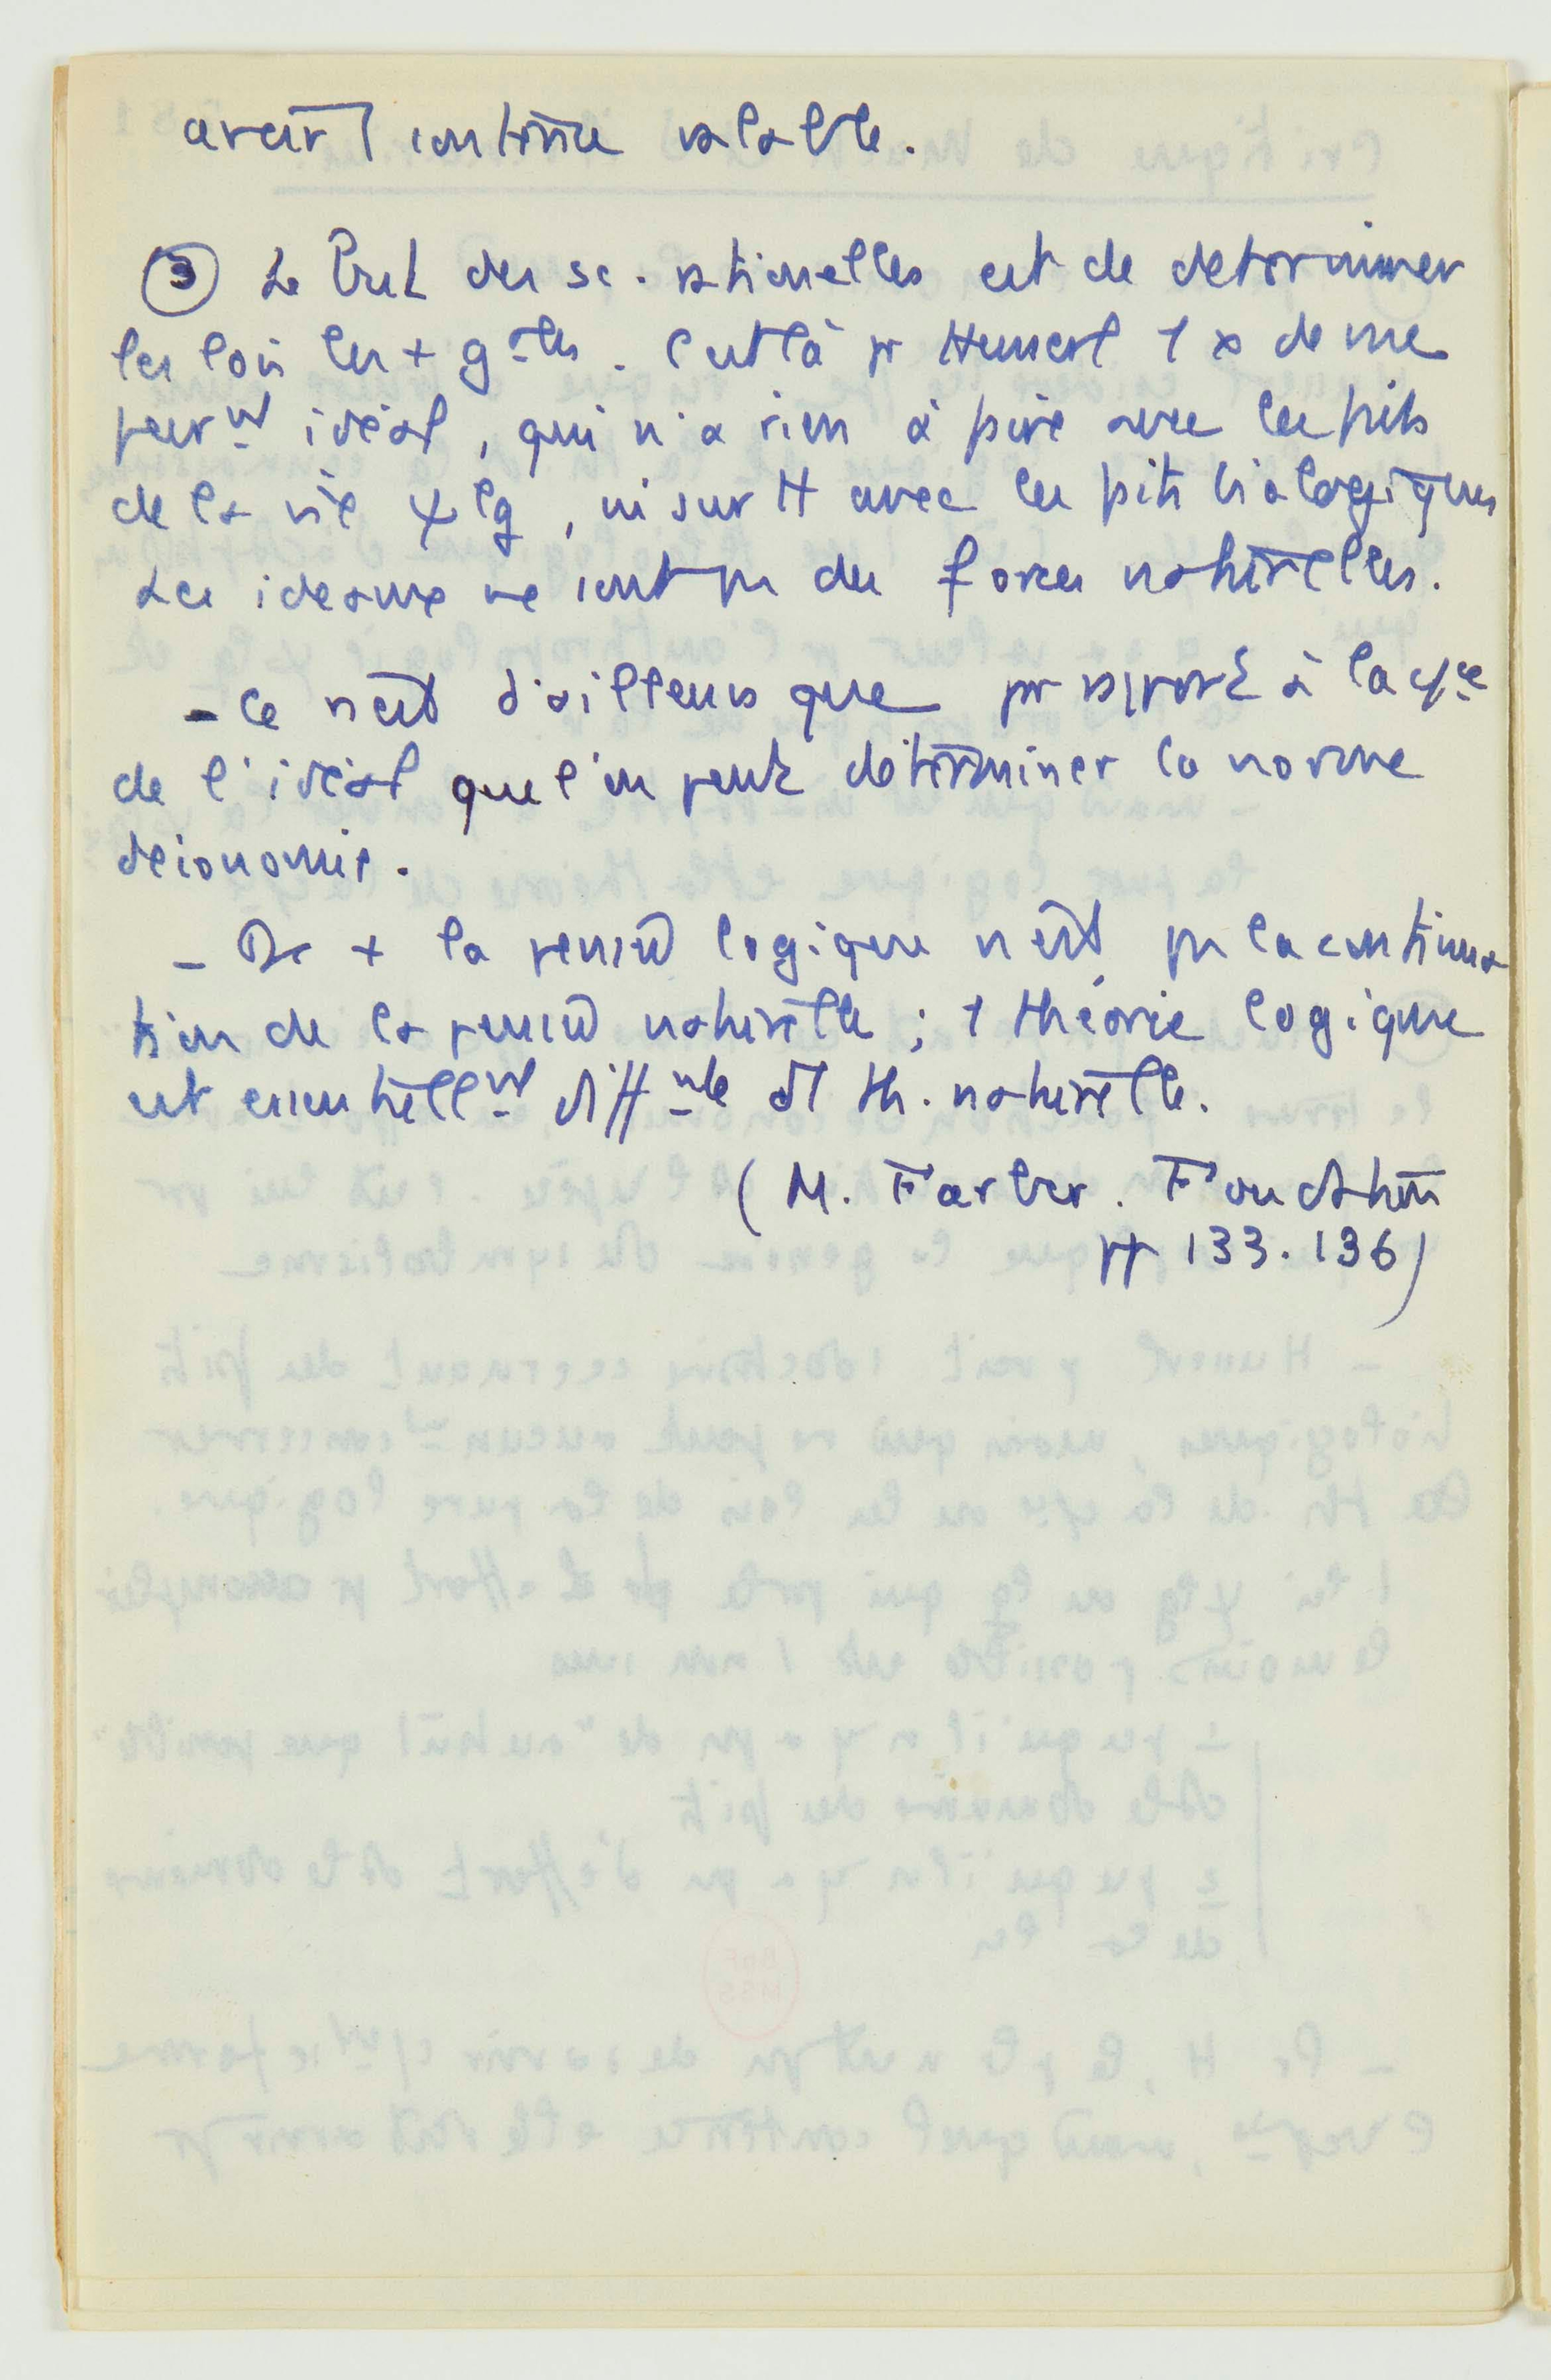 avoir 1 contenu valable.
③ Le but des sc. rationelles est de determiner
les lois les + g^ales. C'est là pr Husserl 1 x de vue
purem^t idéal, qui n'a rien à faire avec les faits
de la vie ψlg, ni surtt avec les faits biologiques
Les ideaux ne sont pas des forces naturelles.
- Ce n'est d'ailleurs que pr rapport à la
de l'idéal que l'on peut déterminer la norme
d'économie.
- De + la pensée logique n'est pas la continua
tion de la pensée naturelle ; 1 théorie logique
est essentiellm^t diff^nte d'1 th. naturelle.
( M. Farber. Foundation
pp 133.136)